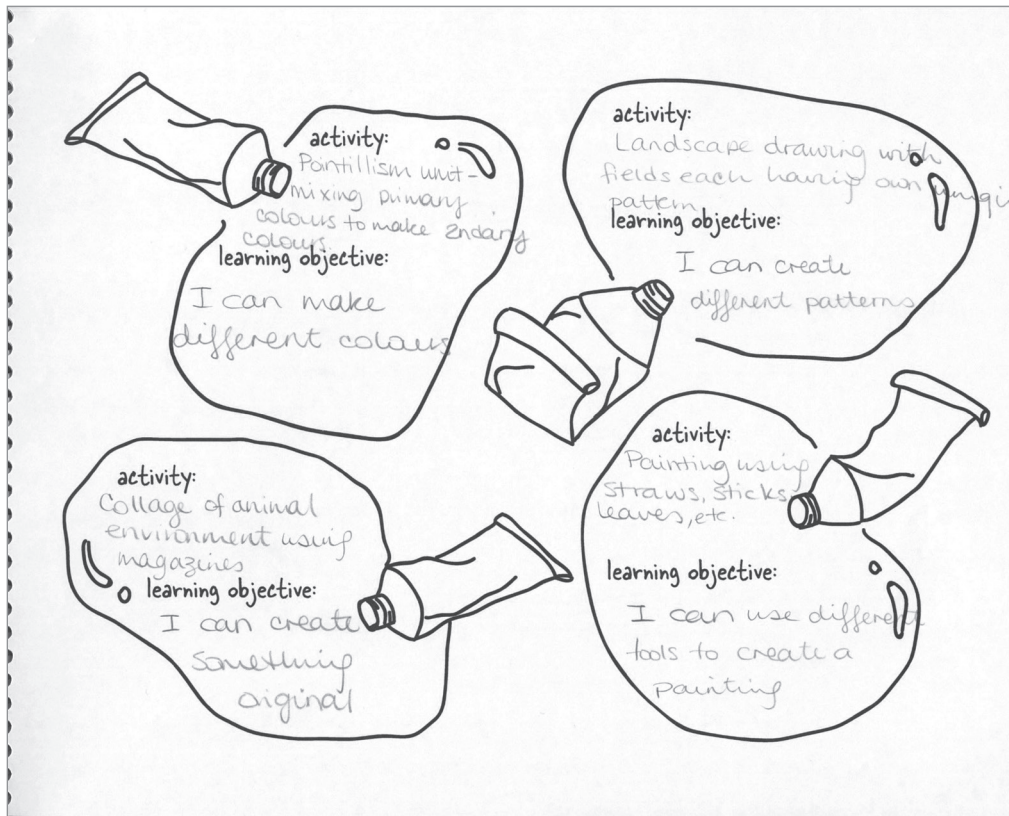 activity:
Pointillism unit-
mixing primary
colours to make 2ndary
colours.
learning objective:
I can make
different colours
activity:
Landscape drawing with
fields each having own
pattern.
learning objective:
I can create
different patterns
activity:
Collage of animal
environment using
magazines
learning objective:
I can create
something
original
activity:
Painting using
straws, sticks,
leaves, etc.
learning objective:
I can use different
tools to create a
painting